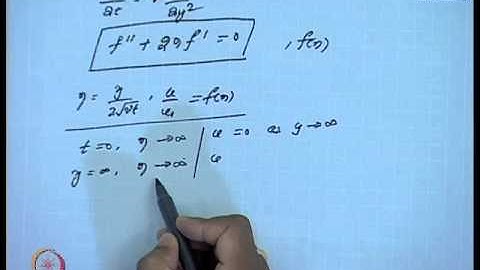 ∂t ∂y²
f'' + 2ηf' = 0 , f(η)
η = y / 2√νt , u / u₁ = f(η)
t = 0, η → ∞ | u = 0 as y → ∞
y = ∞, η → ∞ | u